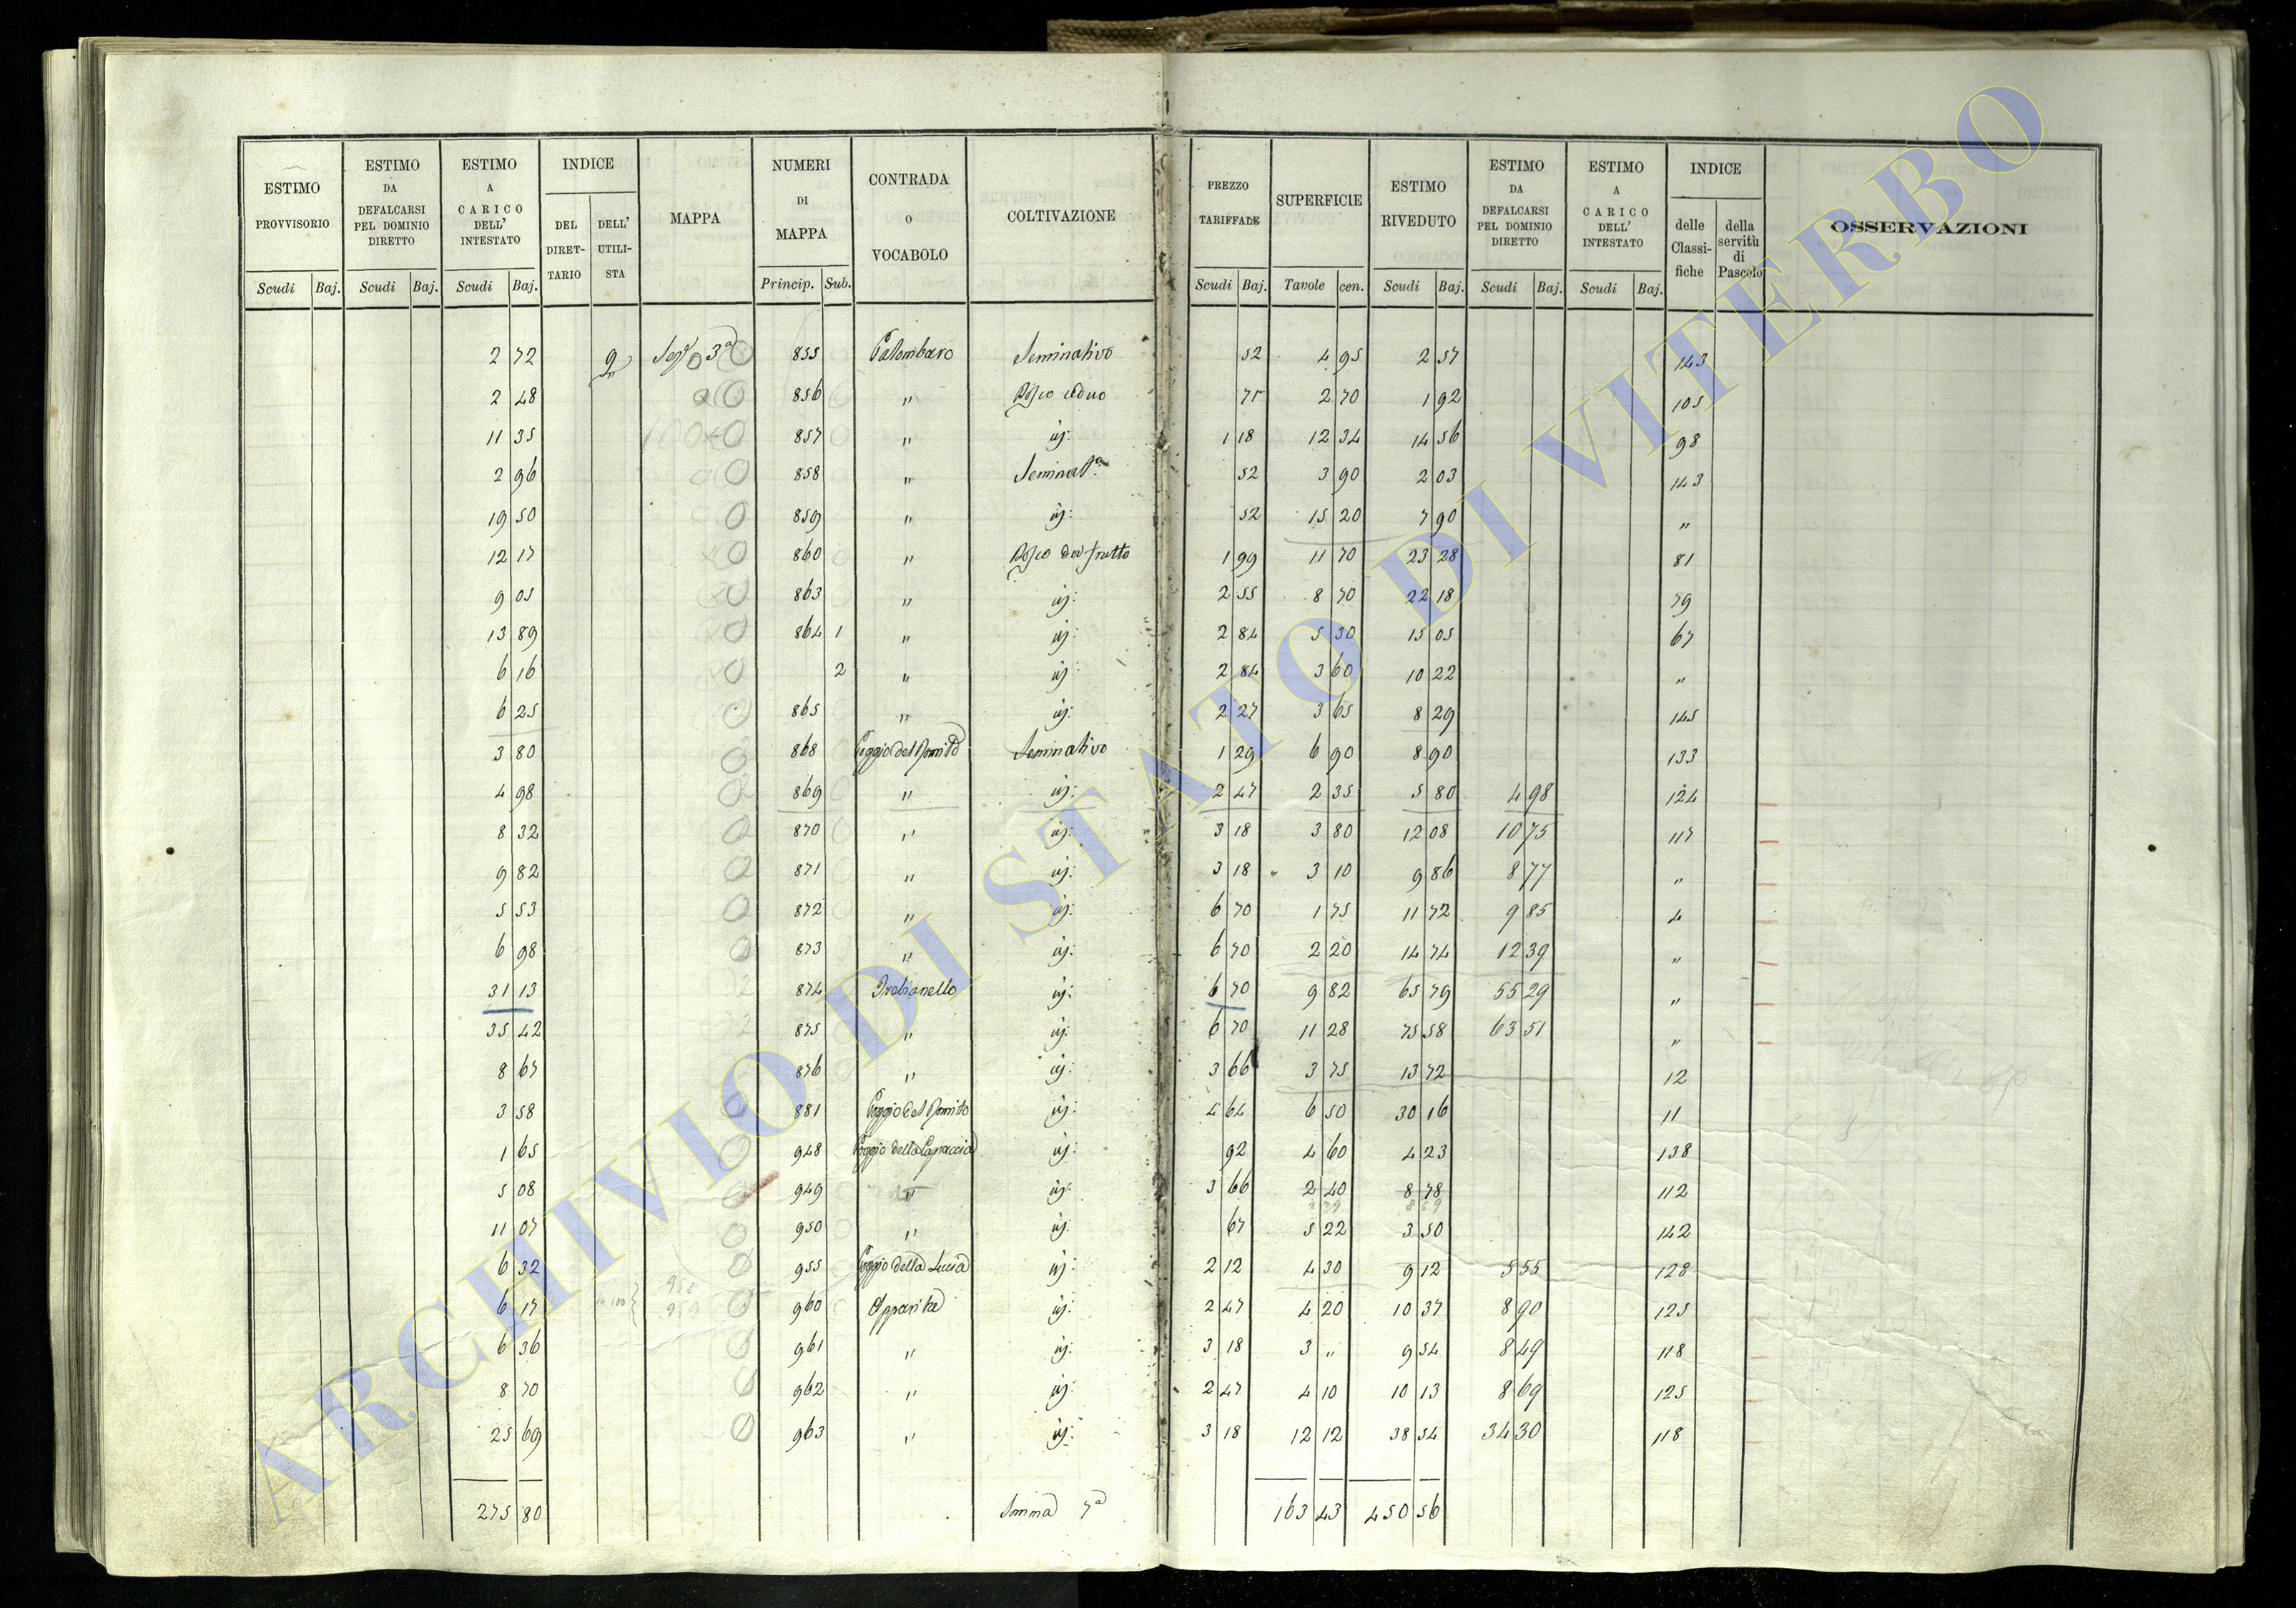 ESTIMO PROVVISORIO Scudi Baj.
ESTIMO DA DEFALCARSI PEL DOMINIO DIRETTO Scudi Baj.
ESTIMO A CARICO DELL' INTESTATO Scudi Baj.
INDICE DEL DIRET-TARIO DELL' UTILI-STA
MAPPA
NUMERI DI MAPPA Princip. Sub.
CONTRADA O VOCABOLO
COLTIVAZIONE
PREZZO TARIFFALE Scudi Baj.
SUPERFICIE Tavole cen.
ESTIMO RIVEDUTO Scudi Baj.
ESTIMO DA DEFALCARSI PEL DOMINIO DIRETTO Scudi Baj.
ESTIMO A CARICO DELL' INTESTATO Scudi Baj.
INDICE delle Classi-fiche della servitù di Pascolo
OSSERVAZIONI
2 72 9 3ª 855 Palombaro Seminativo 52 4 95 2 57 143
2 48 856 " Bosco ceduo 71 2 70 1 92 105
11 35 857 " id: 1 18 12 34 14 56 98
2 96 858 " Seminatº 52 3 90 2 03 143
19 50 859 " id: 52 15 20 7 90 "
12 17 860 " Bosco da frutto 1 99 11 70 23 28 81
9 05 863 " id: 2 55 8 70 22 18 79
13 89 864 1 " id: 2 84 5 30 15 05 67
6 16 2 " id: 2 84 3 60 10 22 "
6 25 865 " id: 2 27 3 65 8 29 145
3 80 868 Poggio del Romito Seminativo 1 29 6 90 8 90 133
4 98 869 " id: 2 47 2 35 5 80 4 98 124
8 32 870 " id: 3 18 3 80 12 08 10 75 117
9 82 871 " id: 3 18 3 10 9 86 8 77 "
5 53 872 " id: 6 70 1 75 11 72 9 85 4
6 98 873 " id: 6 70 2 20 14 74 12 39 "
31 13 874 id: 6 70 9 82 65 79 55 29 "
35 42 875 " id: 6 70 11 28 75 58 63 51 "
8 67 876 " id: 3 66 3 75 13 72 12
3 58 881 Poggio del Romito id: 4 64 6 50 30 16 11
1 65 948 Poggio della Capaccia id: 92 4 60 4 23 138
5 08 949 " id: 3 66 2 40 8 78 112
11 07 950 " id: 67 5 22 3 50 142
6 32 955 Poggio della Lucia id: 2 12 4 30 9 12 5 55 128
6 17 960 Apparita id: 2 47 4 20 10 37 8 90 125
6 36 961 " id: 3 18 3 " 9 54 8 49 118
8 70 962 " id: 2 47 4 10 10 13 8 69 125
25 69 963 " id: 3 18 12 12 38 54 34 30 118
275 80 Somma 7ª 163 43 450 56
ARCHIVIO DI STATO DI VITERBO